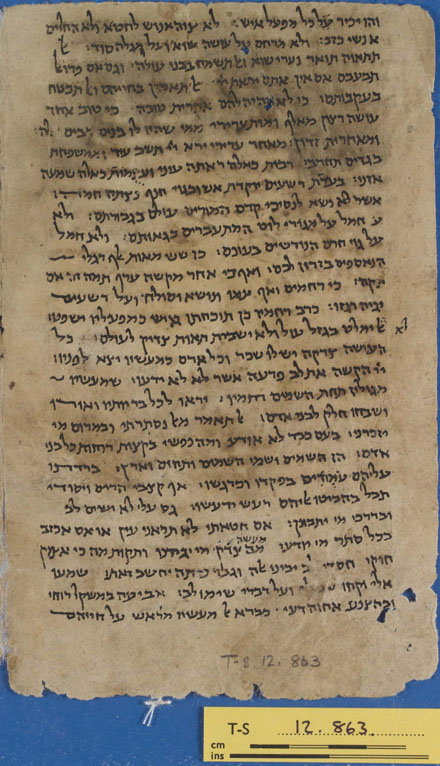 והו יכיר על כל מפעל איש׃ לא צוה אנוש לחטא ולא החלים
אנשי כזב׃ ולא מרחם על עושה שוא ועל מגלה סוד׃ אל
תתאוה תואר נערי שוא ואל תשמח בבני עולה׃ וגם אם פרו אל
תבעבם אם אין אתם יראת ייי׃ אל תאמין בחייהם ואל תבטח
בעקבותם׃ כי לא תהיה להם אחרית טובה׃ כי טוב אחד
עושה רצון מאלף ומות ערירי ממי שהיו לו בנים רבים
ומאחרית זדון׃ מאחד ערירי ירא ייי תשב עיר וממשפחת
בגדים תחרב׃ רבות כאלה ראתה עיני ועצמות כאלה שמעה
אזני׃ בעדת רשעים יוקדת אש ובגוי חנף נצתה חמה׃
אשר לא נשא לנסיכי קדם המורים עולם בגבורתם׃ ולא
חמל על מגורי לוט המתעברים בגאותם׃ ולא חמל
על גוי חרם הנורשים בעונם׃ כן שש מאות אלף רגלי
הנאספים בזדון לבם׃ ואף כי אחד מקשה ערף תמה זה אם
ינקה׃ כי רחמים ואף עמו ונושא וסולח ועל רשעים
יגיה רגזו׃ כרב רחמיו כן תוכחתו איש כמפעליו ישפט׃
לא ימלט בגזל עול ולא ישבית תאות צדיק לעולם׃ כל
העושה צדקה יש לו שכר וכל אדם כמעשיו יצא לפניו׃
ייי הקשה את לב פרעה אשר לא ידעו שמעשיו
מגולין תחת השמים׃ רחמיו יראו לכל בריותיו ואורו
ושבחו חלק לבני אדם׃ אל תאמר מאל נסתרתי ובמרום מי
יזכרני׃ בעם כבד לא אודע ומה נפשי בקצות רוחות כל בני
אדם׃ הן השמים ושמי השמים ותהום וארץ׃ ברדתו
עליהם עמודים בפקדו וכרגשו׃ אף קצבי הרים ויסודי
תבל בהביטו אליהם רעש ירעשו׃ גם עלי לא ישים לב
ובדרכי מי יתבונן׃ אם חטאתי לא תראני עין או אם אכזב
בכל סתר מי יודע׃ מעשה צדק מי יגידנו ותקות מה כי אצוק
חוק׃ חסרי לב יבינו אלה וגבר פותה יחשב זאת׃ שמעו
אלי וקחו ועל דברי שימו לב׃ אביעה במשקל רוחי
ובהצנע אחוה דעי׃ כברא אל מעשיו מראש על חייהם
T-S 12.863
T-S 12.863.
cm
ins